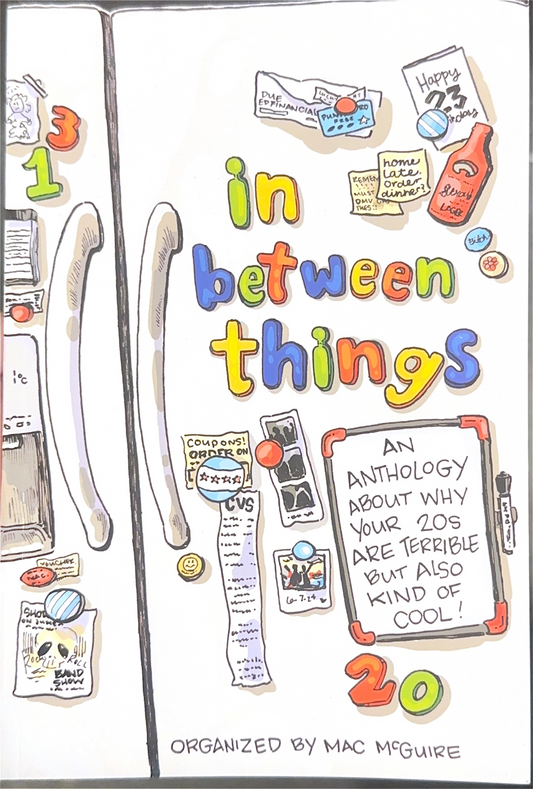 3
1
DUE
FINANCIAL
Happy
23
in
between
things
home
late.
order
dinner?
REMEM
MUST
DMV
Stray
LAGER
Bitch
°C
COUPONS!
ORDER ON
CVS
VOUCHER
SHOW
BAND
SHOW
6-7-24
AN
ANTHOLOGY
ABOUT WHY
YOUR 20S
ARE TERRIBLE
BUT ALSO
KIND OF
COOL!
20
ORGANIZED BY MAC McGUIRE